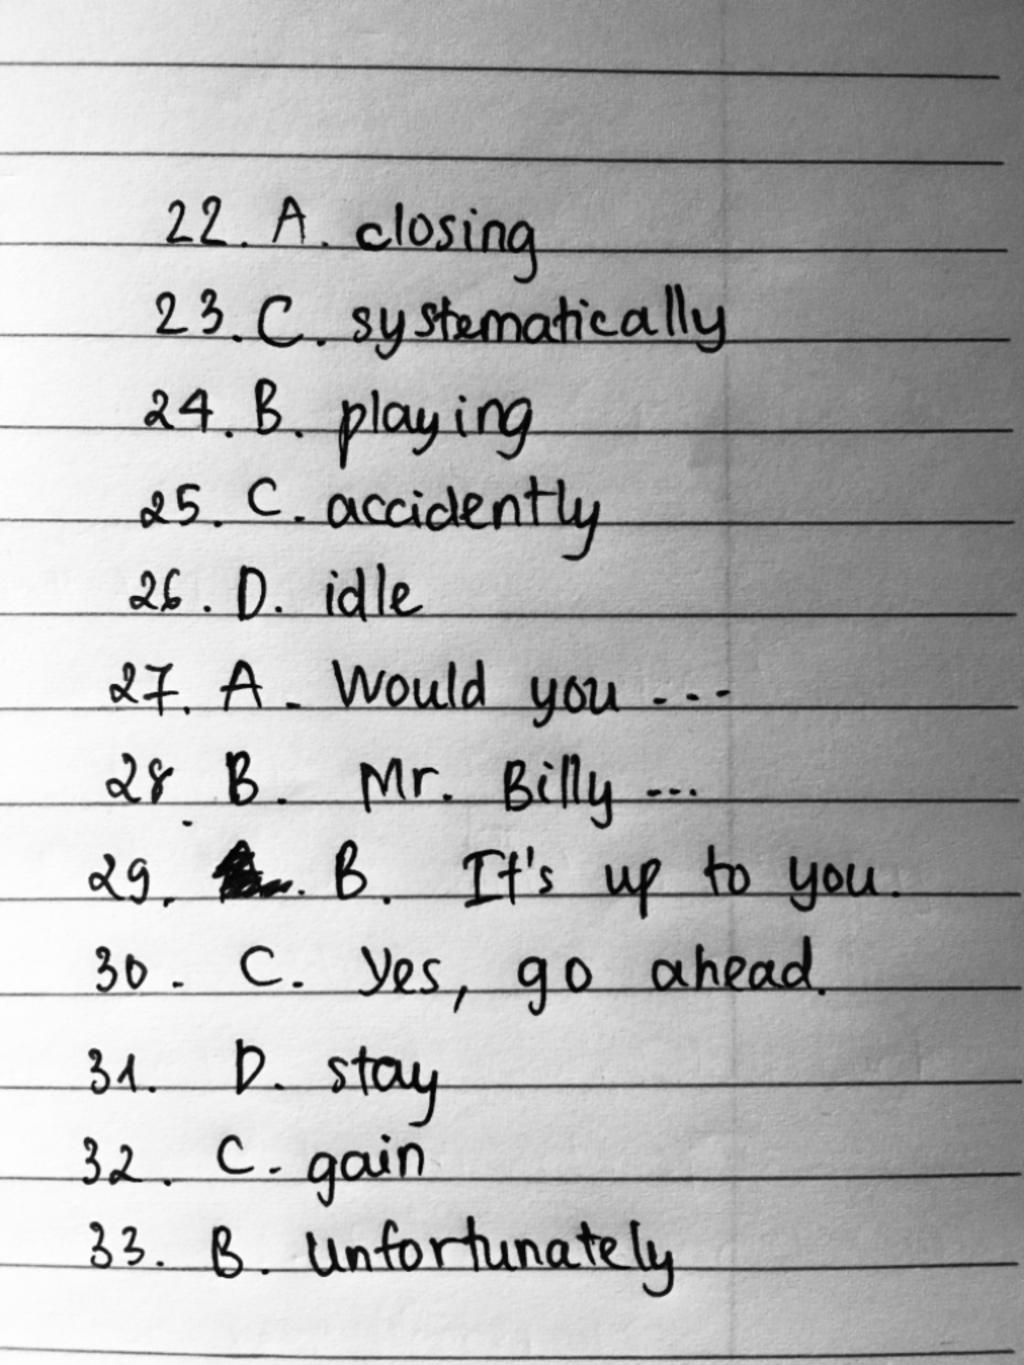 22. A. closing
23. C. systematically
24. B. playing
25. C. accidently
26. D. idle
27. A. Would you ...
28. B. Mr. Billy ...
29. B. It's up to you.
30. C. Yes, go ahead.
31. D. stay
32. C. gain
33. B. Unfortunately